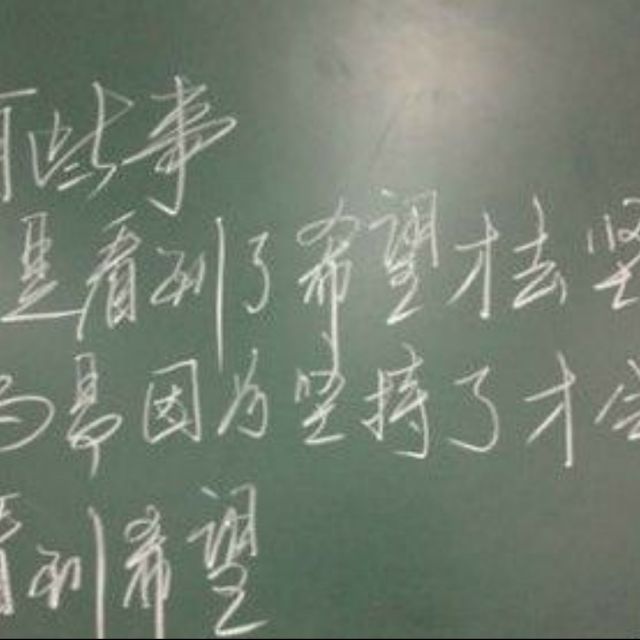 有些事
是看到了希望才去坚
而是因为坚持了才会
看到希望